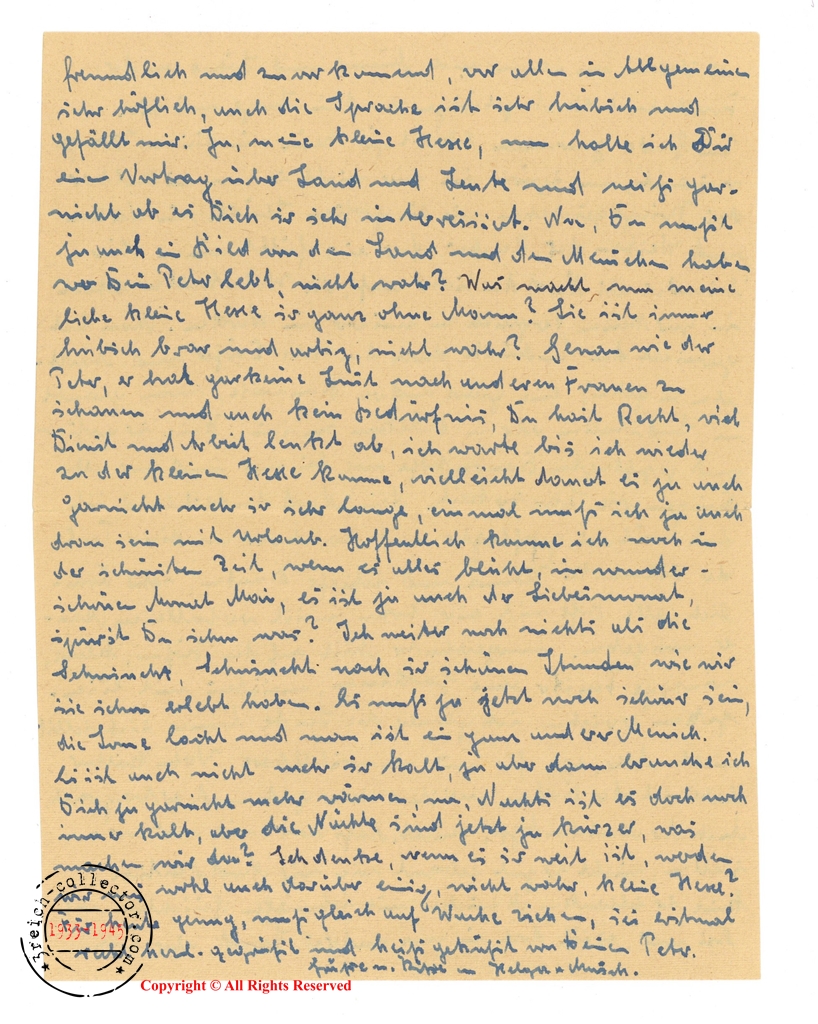 freundlich und zuvorkommend, vor allen in Allgemeinen
sehr höflich, auch die Sprache ist sehr hübsch und
gefällt mir. Ja, meine kleine Hexe, nun halte ich Dir
ein Vortrag über Land und Leute und weiß gar-
nicht ob es Dich so sehr interressiert. Na, Du mußt
ja auch ein Bild von den Land und den Menschen haben
wo Dein Peter lebt, nicht wahr? Was macht nun meine
liebe kleine Hexe so ganz ohne Mann? Sie ist immer
hübsch brav und artig, nicht wahr? Genau wie der
Peter, er hat garkeine Lust nach anderen Frauen zu
schauen und auch kein Bedürfnis, Du hast Recht, viel
Dienst und Arbeit lenkt ab, ich warte bis ich wieder
zu der kleinen Hexe komme, vielleicht dauert es ja auch
garnicht mehr so sehr lange, einmal muß ich ja auch
dran sein mit Urlaub. Hoffentlich komme ich noch in
der schönsten Zeit, wenn es alles blüht, in wunder-
schönen Monat Mai, es ist ja auch der Liebesmonat,
spürst Du schon was? Ich weiter noch nichts als die
Sehnsucht, Sehnsucht nach so schönen Stunden wie wir
sie schon erlebt haben. Es muß ja jetzt noch schöner sein,
die Sonne lacht und man ist ein ganz anderer Mensch.
Es ist auch nicht mehr so kalt, ja aber dann brauche ich
Dich ja garnicht mehr wärmen, na, Nachts ist es doch noch
immer kalt, aber die Nächte sind jetzt ja kürzer, was
machen wir da? Ich denke, wenn es so weit ist, werden
wir uns wohl auch darüber einig, nicht wahr, kleine Hexe?
Für heute genug, muß gleich auf Wache ziehen, sei erstmal
recht herzl. gegrüßt und heiß geküßt von Deinen Peter.
Grüße u. Küße an Helga u. Musch.
3reich-collector.com
1933-1945
Copyright © All Rights Reserved